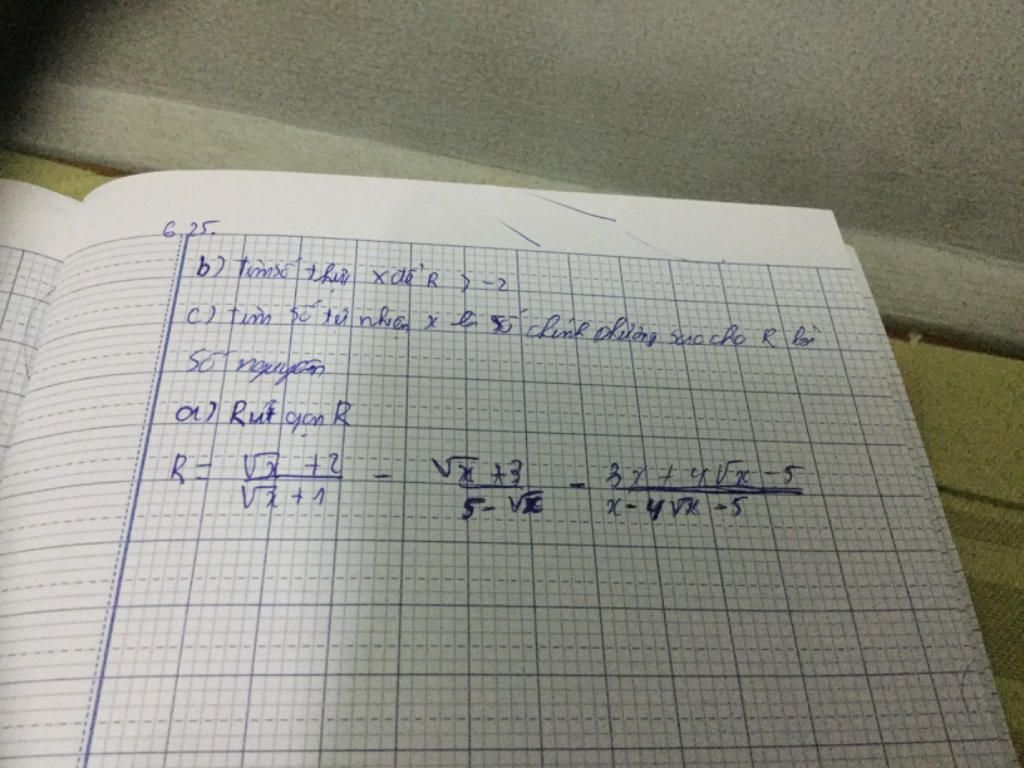 6.25.
b) tìm số thực x để R > -2
c) tìm số tự nhiên x là số chính phương sao cho R là
số nguyên
a) Rút gọn R
R = \frac{\sqrt{x} + 2}{\sqrt{x} + 1} - \frac{\sqrt{x} + 3}{5 - \sqrt{x}} - \frac{3x + 4\sqrt{x} - 5}{x - 4\sqrt{x} - 5}